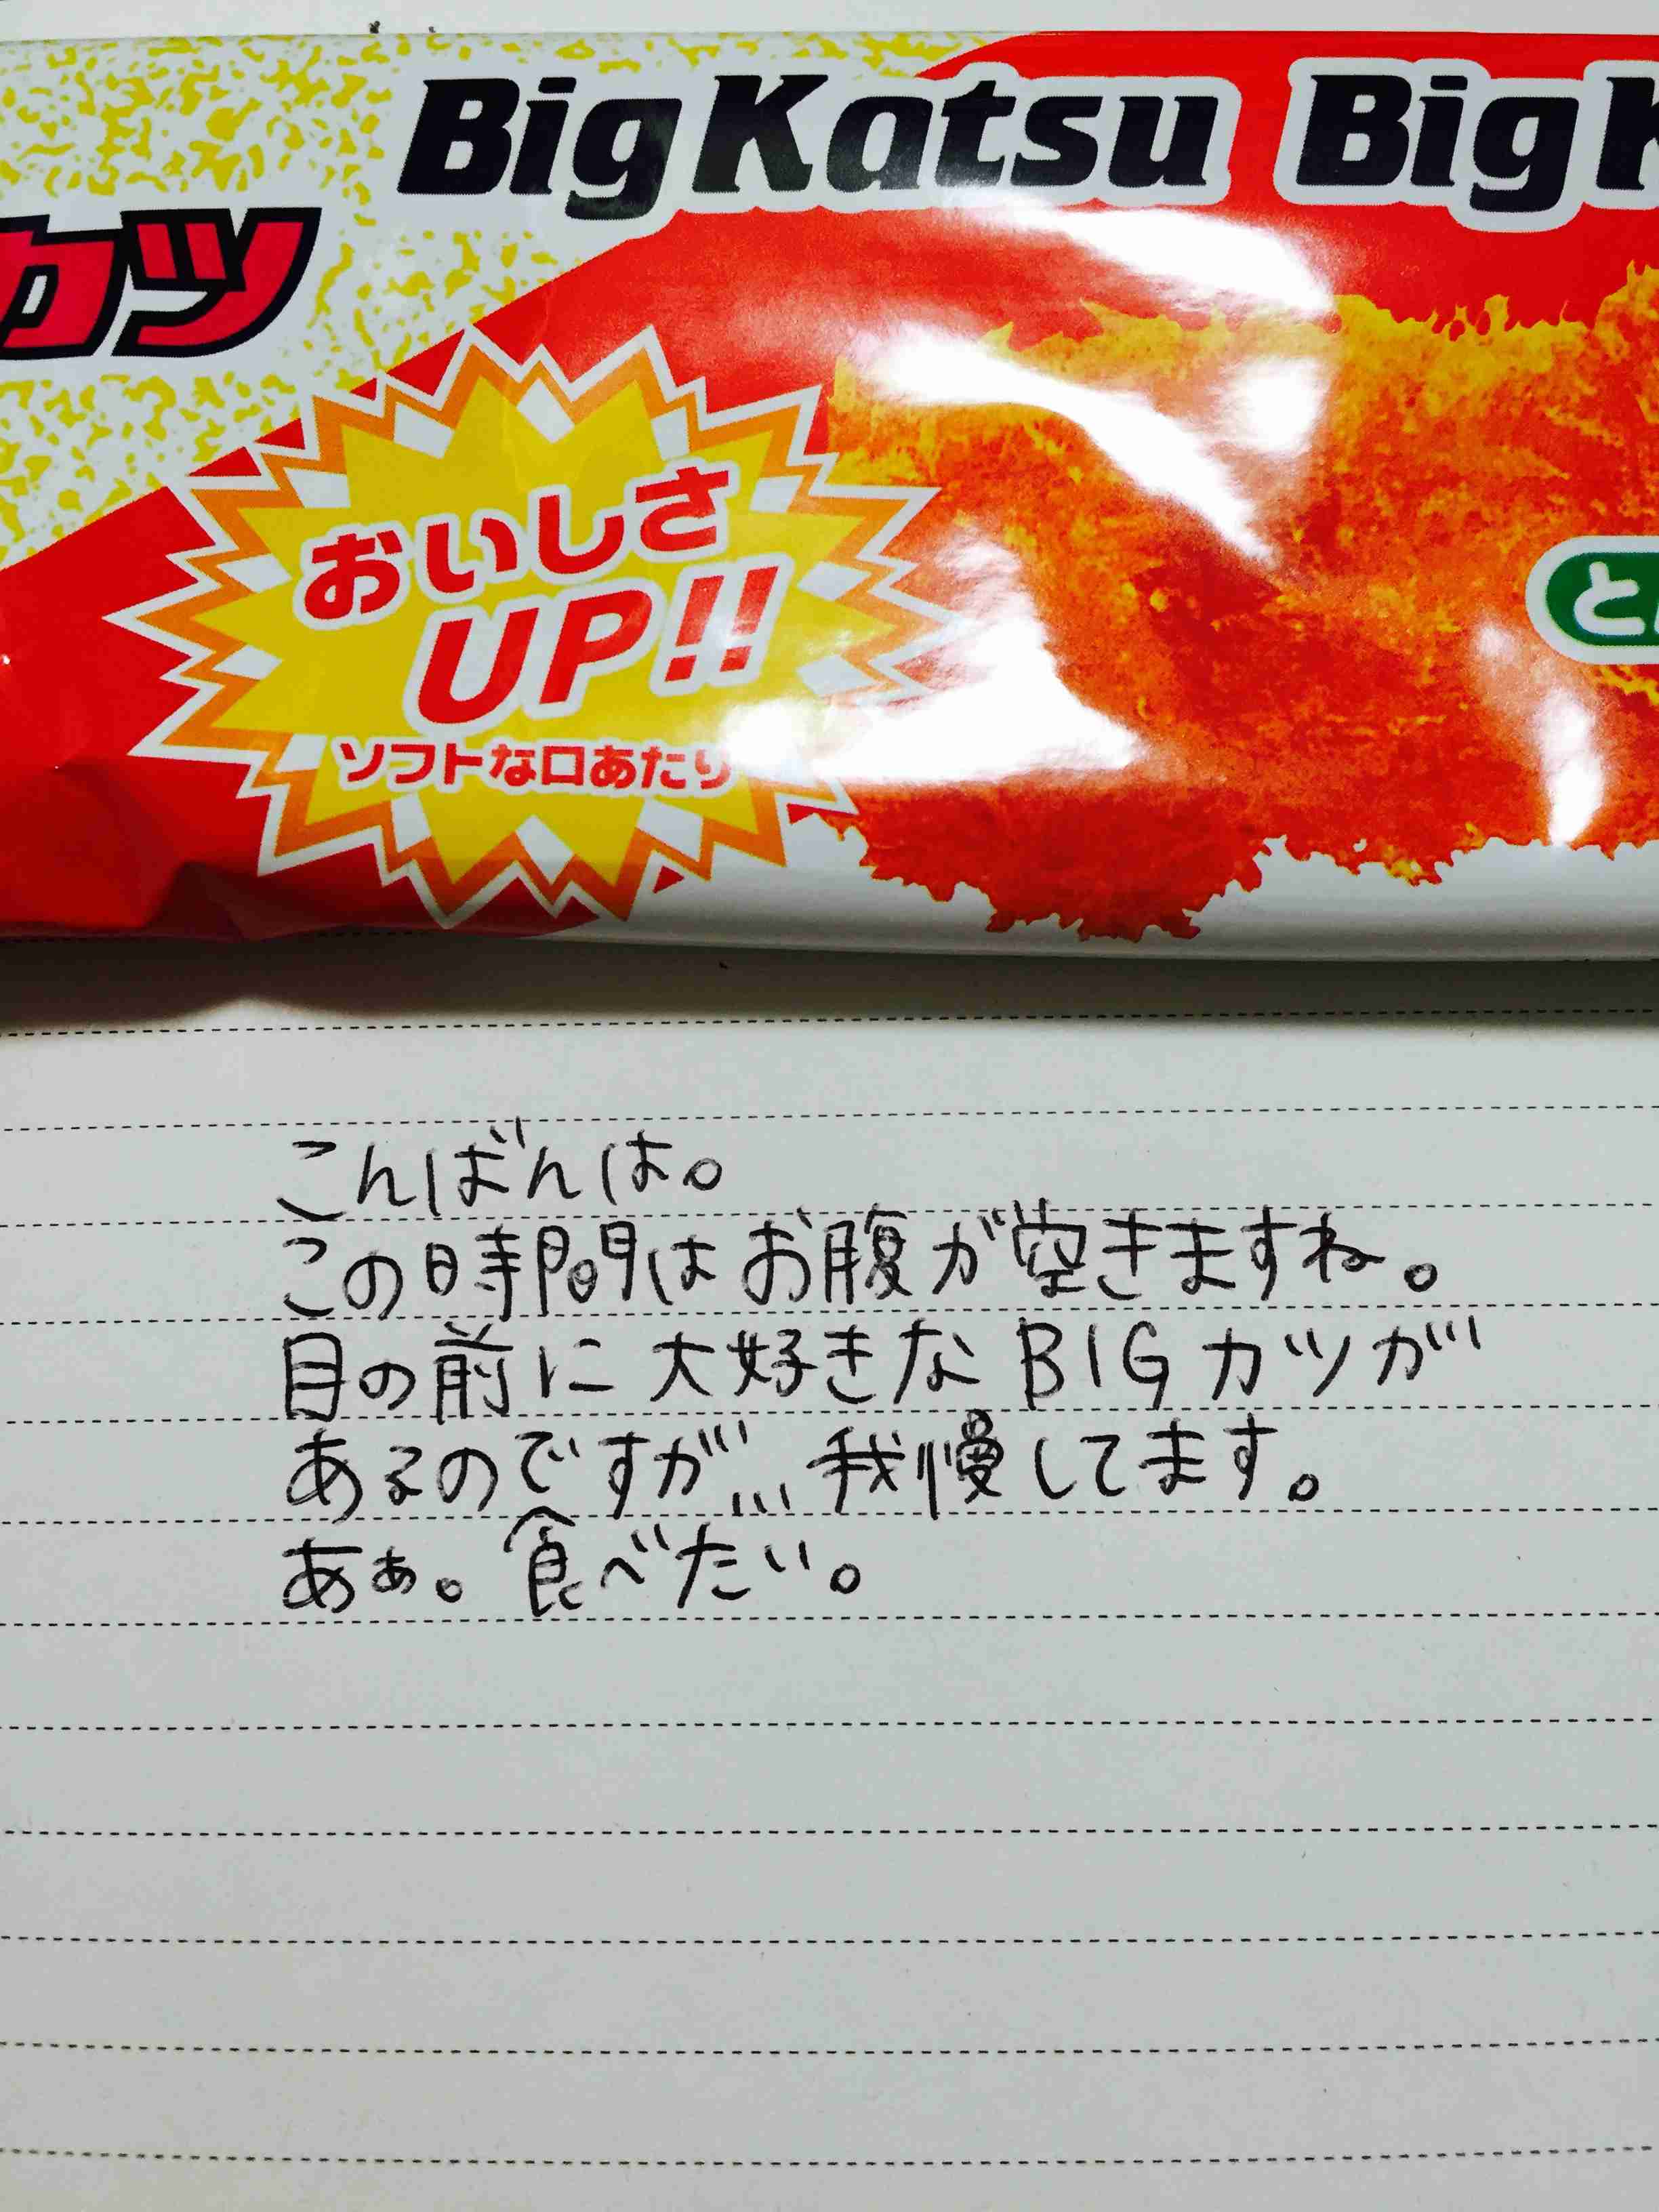 BigKatsu BigK
カツ
おいしさ
UP!!
ソフトな口あたり
と
こんばんは。
この時間はお腹が空きますね。
目の前に大好きなBIGカツが
あるのですが...我慢してます。
あぁ。食べたい。